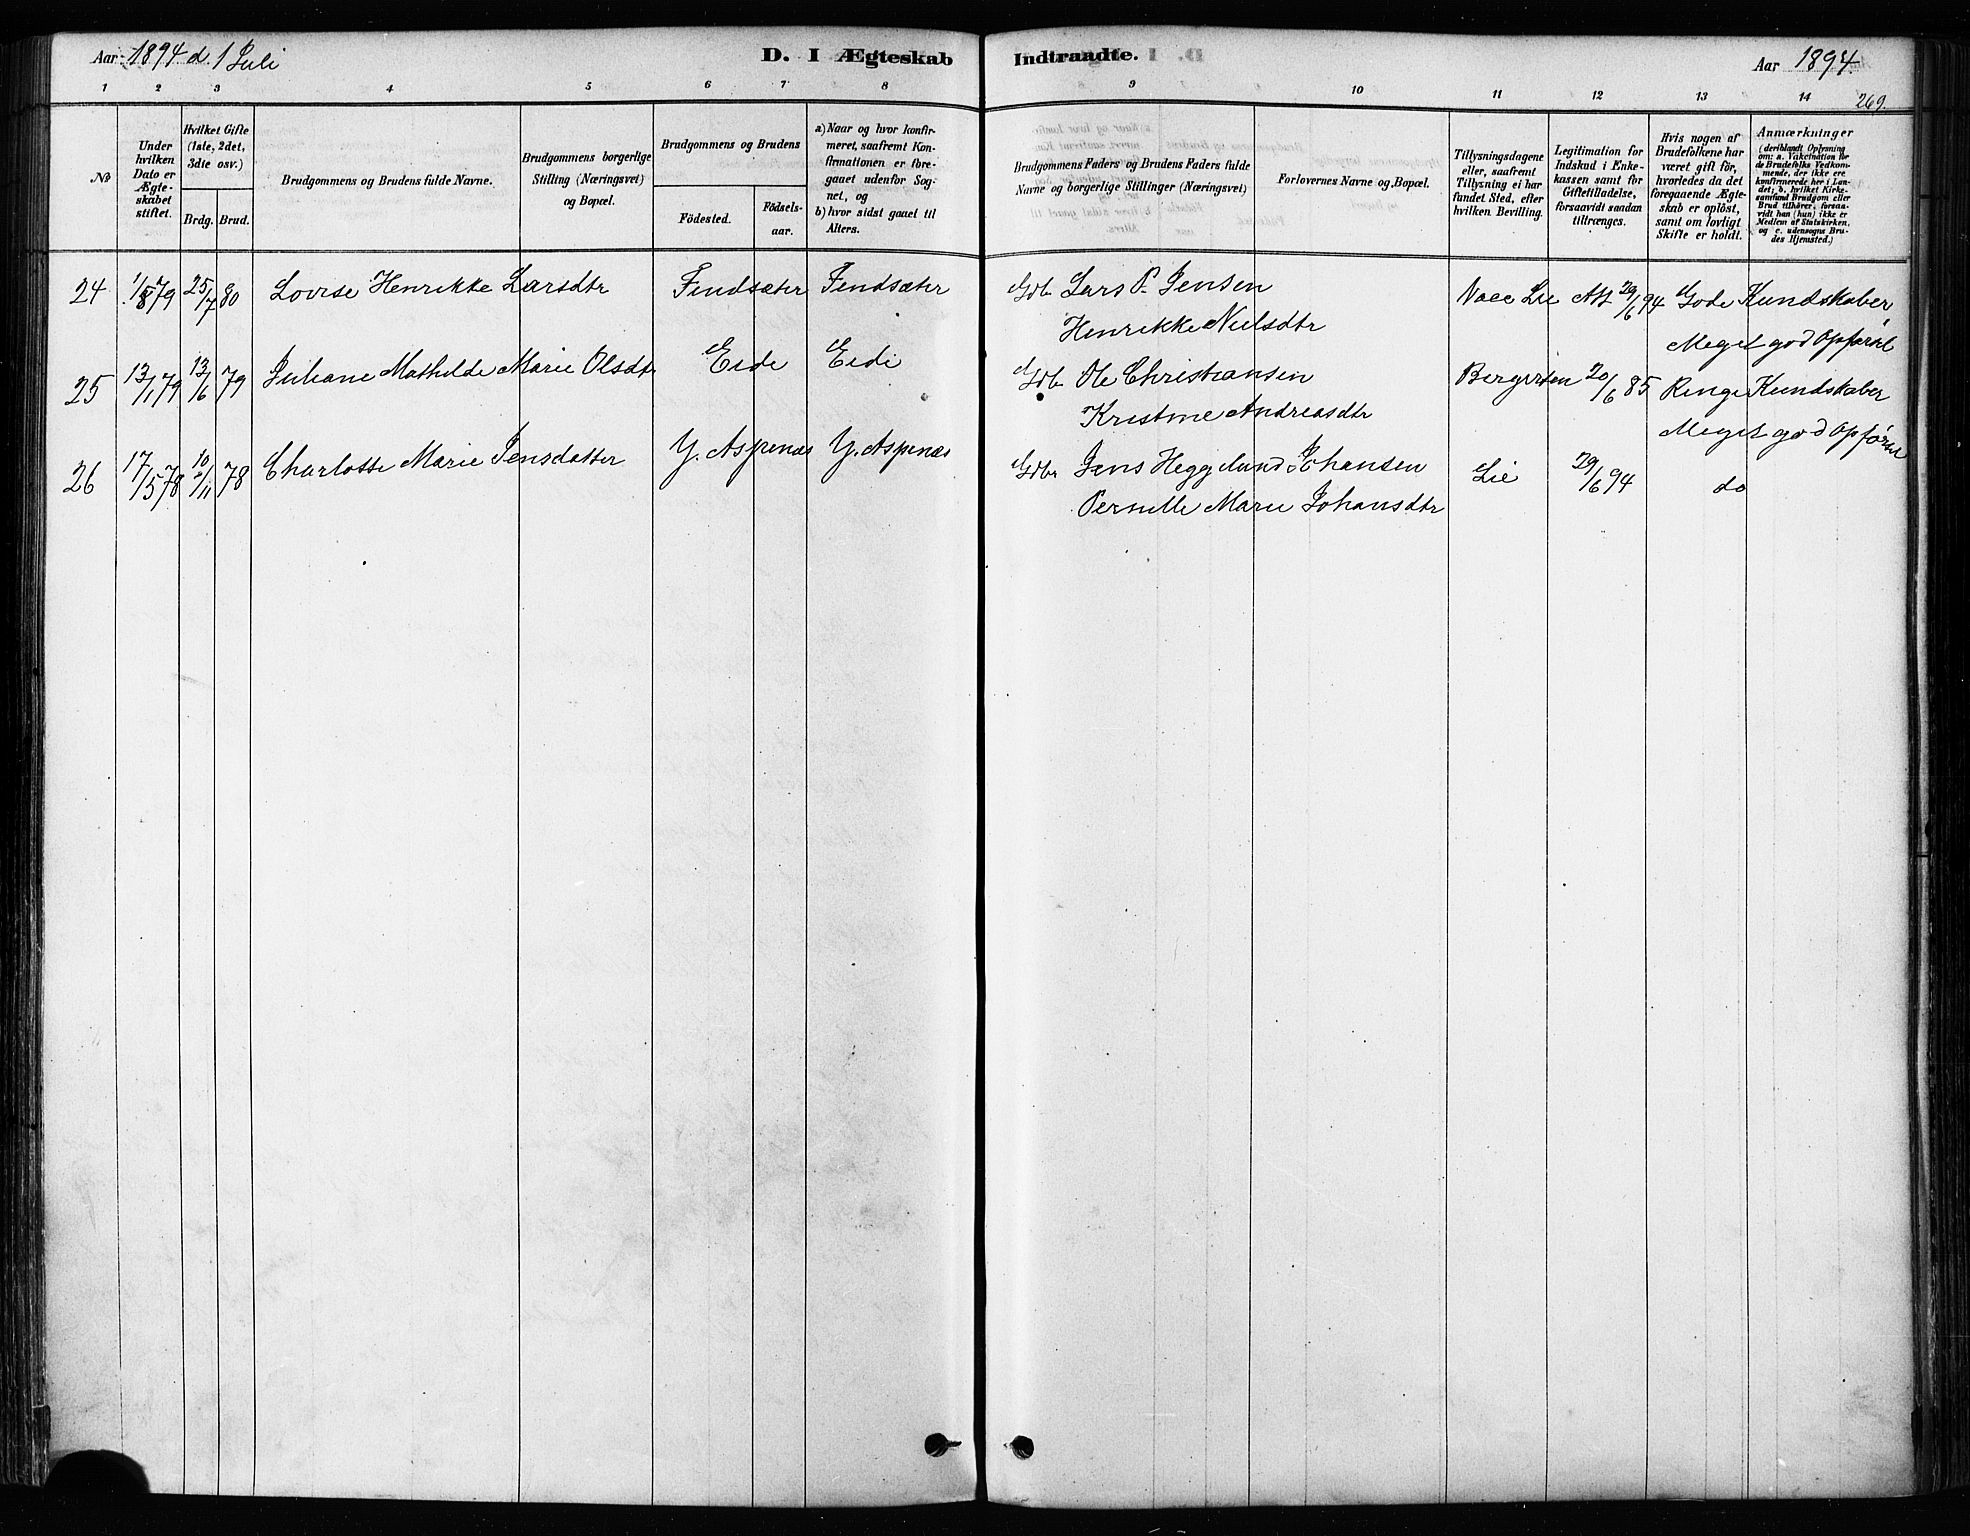 Aar 1894 d. 1 Juli
D. I Ægteskab
Indtraadte.
Aar 1894.
269.
1 2 3 4 5 6 7 8
9 10 11 12 13 14
No
Under hvilken Dato er Ægteskabet stiftet.
Hvilket Gifte (1ste, 2det, 3die osv.)
Brdg. Brud.
Brudgommens og Brudens fulde Navne.
Brudgommens borgerlige Stilling (Næringsvei) og Bopæl.
Brudgommens og Brudens
Födested.
Födselsaar.
a) Naar og hvor konfirmeret, saafremt Konfirmationen er foregaaet udenfor Sognet, og
b) hvor sidst gaaet til Alters.
Brudgommens Faders og Brudens Faders fulde Navne og borgerlige Stillinger (Næringsvei)
Forlovernes Navne og Bopæl.
Tillysningsdagene eller, saafremt Tillysning ei har fundet Sted, efter hvilken Bevilling.
Legitimation for Indskud i Enkekassen samt for Giftetilladelse, forsaavidt saadan tiltrænges.
Hvis nogen af Brudefolkene har været gift för, hvorledes da det foregaaende Ægteskab er oplöst, samt om lovligt Skifte er holdt.
Anmærkninger (deriblandt Oplysning om: a. Vakcination for de Brudefolks Vedkommende, der ikke ere konfirmerede her i Landet; b. hvilket Kirkesamfund Brudgom eller Brud tilhører, forsaavidt han (hun) ikke er Medlem af Statskirken, og c. udensogns Brudes Hjemsted.)
24 1/8 79 25/7 80 Lovise Henrikke Larsdtr Findsæter Findsæter Gdb Lars P. Jensen Lie Att 29/6 94 Gode Kundskaber
Henrikke Nielsdtr Meget god Opførsl
25 13/1 79 13/6 79 Juliane Mathilde Marie Olsdtr Eide Eide Gdb Ole Christiansen 20/6 85 Ringe Kundskaber
Kristine Andreasdtr Meget god Opførsel
26 17/5 78 10/11 78 Charlotte Marie Jensdatter Y. Aspenæs Y. Aspenæs Gdbr Jens Hegglund Johansen Lie 29/6 94 do
Pernille Marie Johansdtr